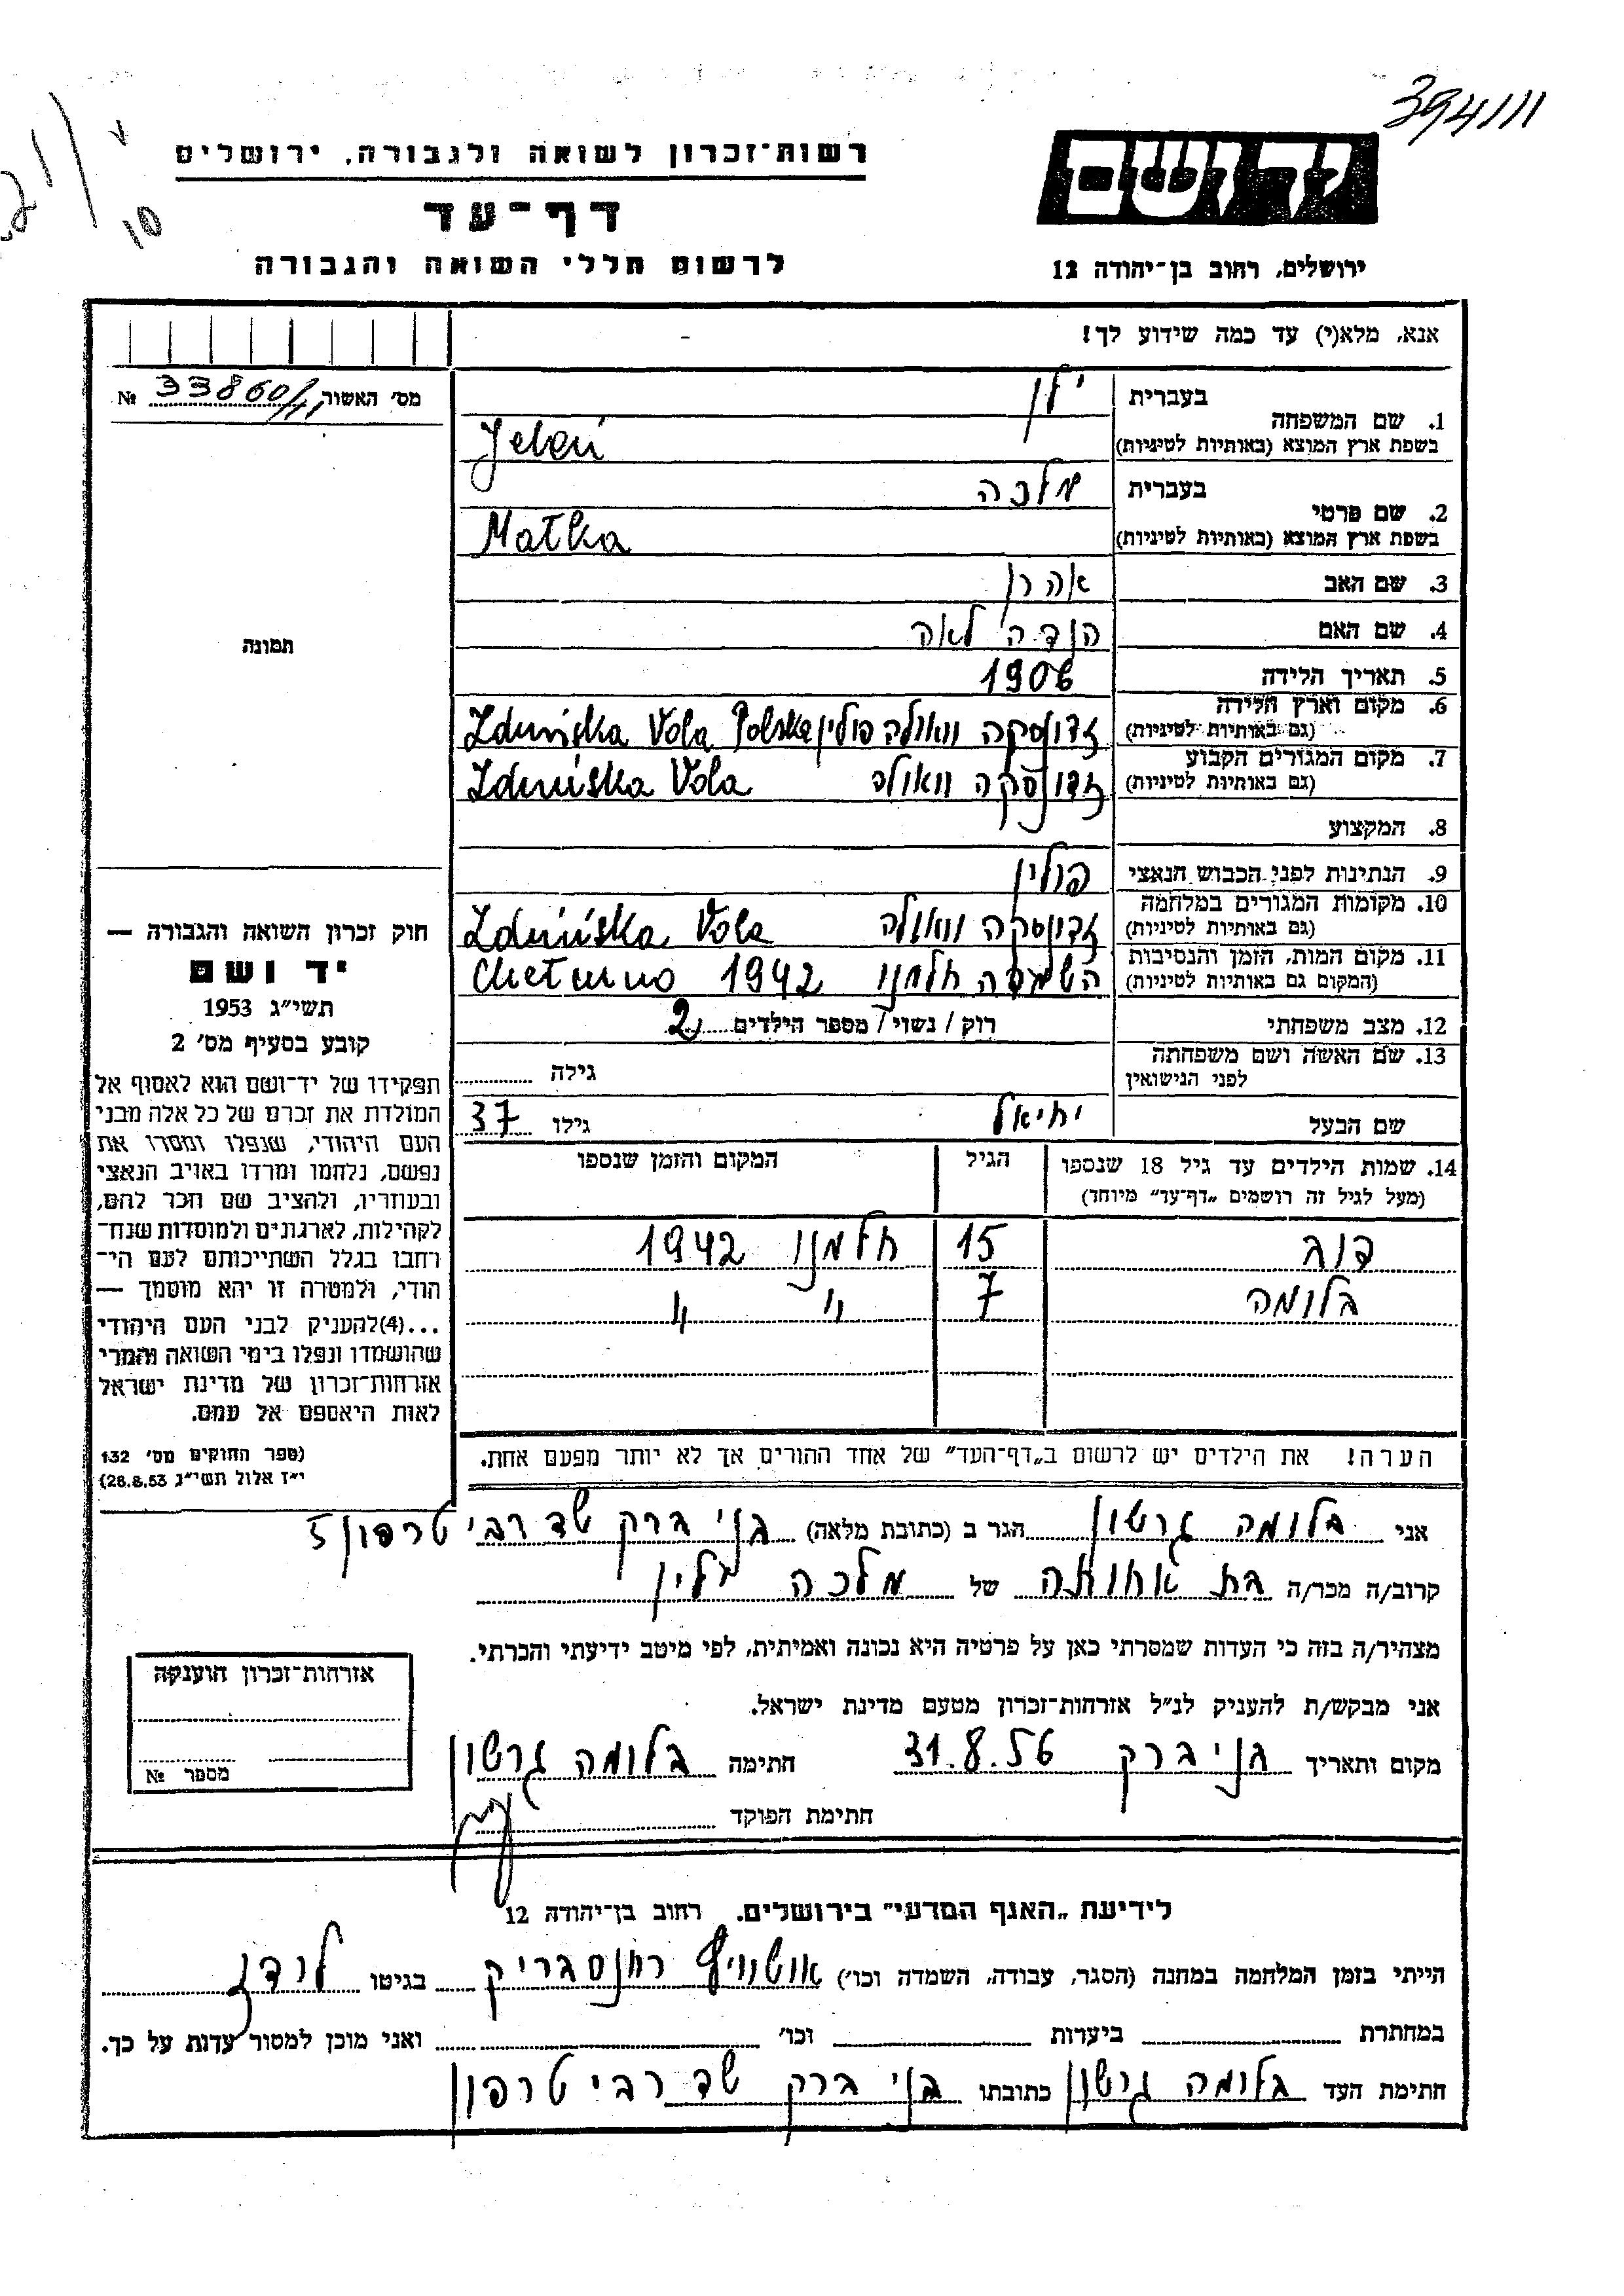 394/11
21/
10
ידושם
ירושלים, רחוב בן-יהודה 12
רשות-זכרון לשואה ולגבורה, ירושלים
דף-עד
לרשום חללי השואה והגבורה
אנא, מלא(י) עד כמה שידוע לך!
מס׳ האשור 33860/11 №
תמונה
1. שם המשפחה בעברית ילן
בשפת ארץ המוצא (באותיות לטיניות) Jeleń
2. שם פרטי בעברית מלכה
בשפת ארץ המוצא (באותיות לטיניות) Malka
3. שם האב אהרן
4. שם האם הנדה לאה
5. תאריך הלידה 1906
6. מקום וארץ הלידה (גם באותיות לטיניות) זדונסקה וואולה פולין Zduńska Vola Polska
7. מקום המגורים הקבוע (גם באותיות לטיניות) זדונסקה וואולה Zduńska Vola
8. המקצוע
9. הנתינות לפני הכבוש הנאצי פולין
10. מקומות המגורים במלחמה (גם באותיות לטיניות) זדונסקה וואולה Zduńska Vola
11. מקום המות, הזמן והנסיבות (המקום גם באותיות לטיניות) השמדה חלמנו 1942 Chełmno
12. מצב משפחתי רוק / נשוי / מספר הילדים 2
13. שם האשה ושם משפחתה לפני הנישואין גילה
שם הבעל יחיאל גילו 37
14. שמות הילדים עד גיל 18 שנספו (מעל לגיל זה רושמים „דף-עד״ מיוחד) הגיל המקום והזמן שנספו
דוב 15 חלמנו 1942
בלומה 7 " "
הערה! את הילדים יש לרשום ב„דף-העד״ של אחד ההורים אך לא יותר מפעם אחת.
חוק זכרון השואה והגבורה —
יד ושם
תשי״ג 1953
קובע בסעיף מס׳ 2
תפקידו של יד-ושם הוא לאסוף אל
המולדת את זכרם של כל אלה מבני
העם היהודי, שנפלו ומסרו את
נפשם, נלחמו ומרדו באויב הנאצי
ובעוזריו, ולהציב שם וזכר להם,
לקהילות, לארגונים ולמוסדות שנח-
רחבו בגלל השתייכותם לעם הי-
הודי, ולמטרה זו יהא מוסמך —
...(4)להעניק לבני העם היהודי
שהושמדו ונפלו בימי השואה והמרי
אזרחות-זכרון של מדינת ישראל
לאות היאספם אל עמם.
(ספר החוקים מס׳ 132
י״ז אלול תשי״ג 28.8.53)
אני בלומה גרשון הגר ב (כתובת מלאה) בני ברק שד רבי טרפון 5
קרוב/ה מכר/ה בת אחותה של מלכה ילין
מצהיר/ה בזה כי העדות שמסרתי כאן על פרטיה היא נכונה ואמיתית, לפי מיטב ידיעתי והכרתי.
אני מבקש/ת להעניק לנ״ל אזרחות-זכרון מטעם מדינת ישראל.
מקום ותאריך בני ברק 31.8.56 חתימה בלומה גרשון
חתימת הפוקד
אזרחות-זכרון הוענקה
מספר №
לידיעת „האגף המדעי״ בירושלים, רחוב בן-יהודה 12
הייתי בזמן המלחמה במחנה (הסגר, עבודה, השמדה וכו׳) אושוויץ רוונסבריק בגיטו לודז
במחתרת ביערות וכו׳ ואני מוכן למסור עדות על כך.
חתימת העד בלומה גרשון כתובתו בני ברק שד רבי טרפון